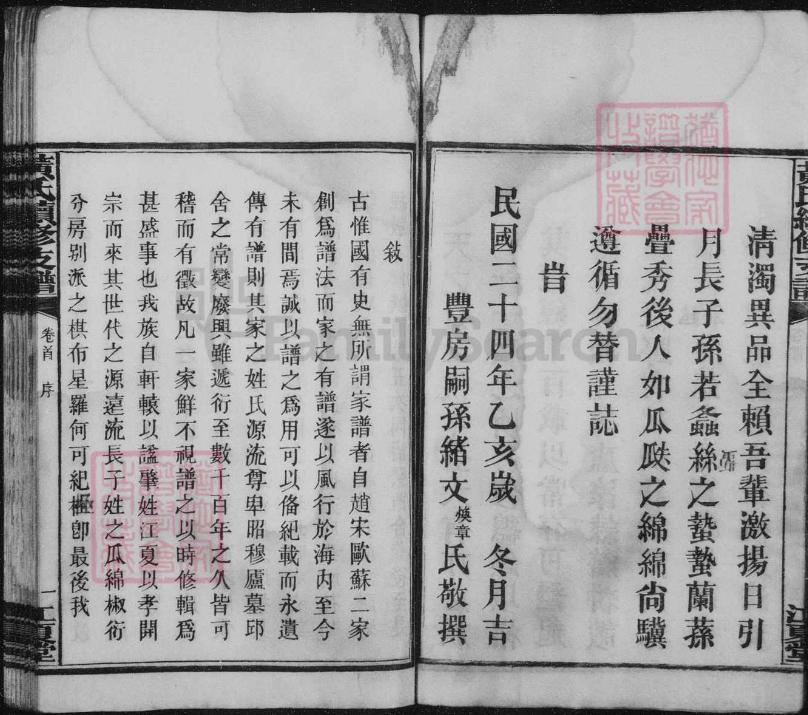 清濁異品全賴吾輩激揚日引
月長子孫若螽絲之蟄蟄蘭蓀
疊秀後人如瓜瓞之綿綿尙驥
遵循勿替謹誌
旹
民國二十四年乙亥歲　冬月吉
豐房嗣孫緒文煥章氏敬撰
黃氏續修支譜
卷首　序
一
江夏堂
敍
古惟國有史無所謂家譜者自趙宋歐蘇二家
創爲譜法而家之有譜遂以風行於海内至今
未有間焉誠以譜之爲用可以俻紀載而永遺
傳有譜則其家之姓氏源流尊卑昭穆廬墓邱
舍之常變廢興雖遞衍至數千百年之久皆可
稽而有徵故凡一家鮮不視譜之以時修輯爲
甚盛事也我族自軒轅以諡肇姓江夏以孝開
宗而來其世代之源遠流長子姓之瓜綿椒衍
分房别派之棋布星羅何可紀極卽最後我
FamilySearch